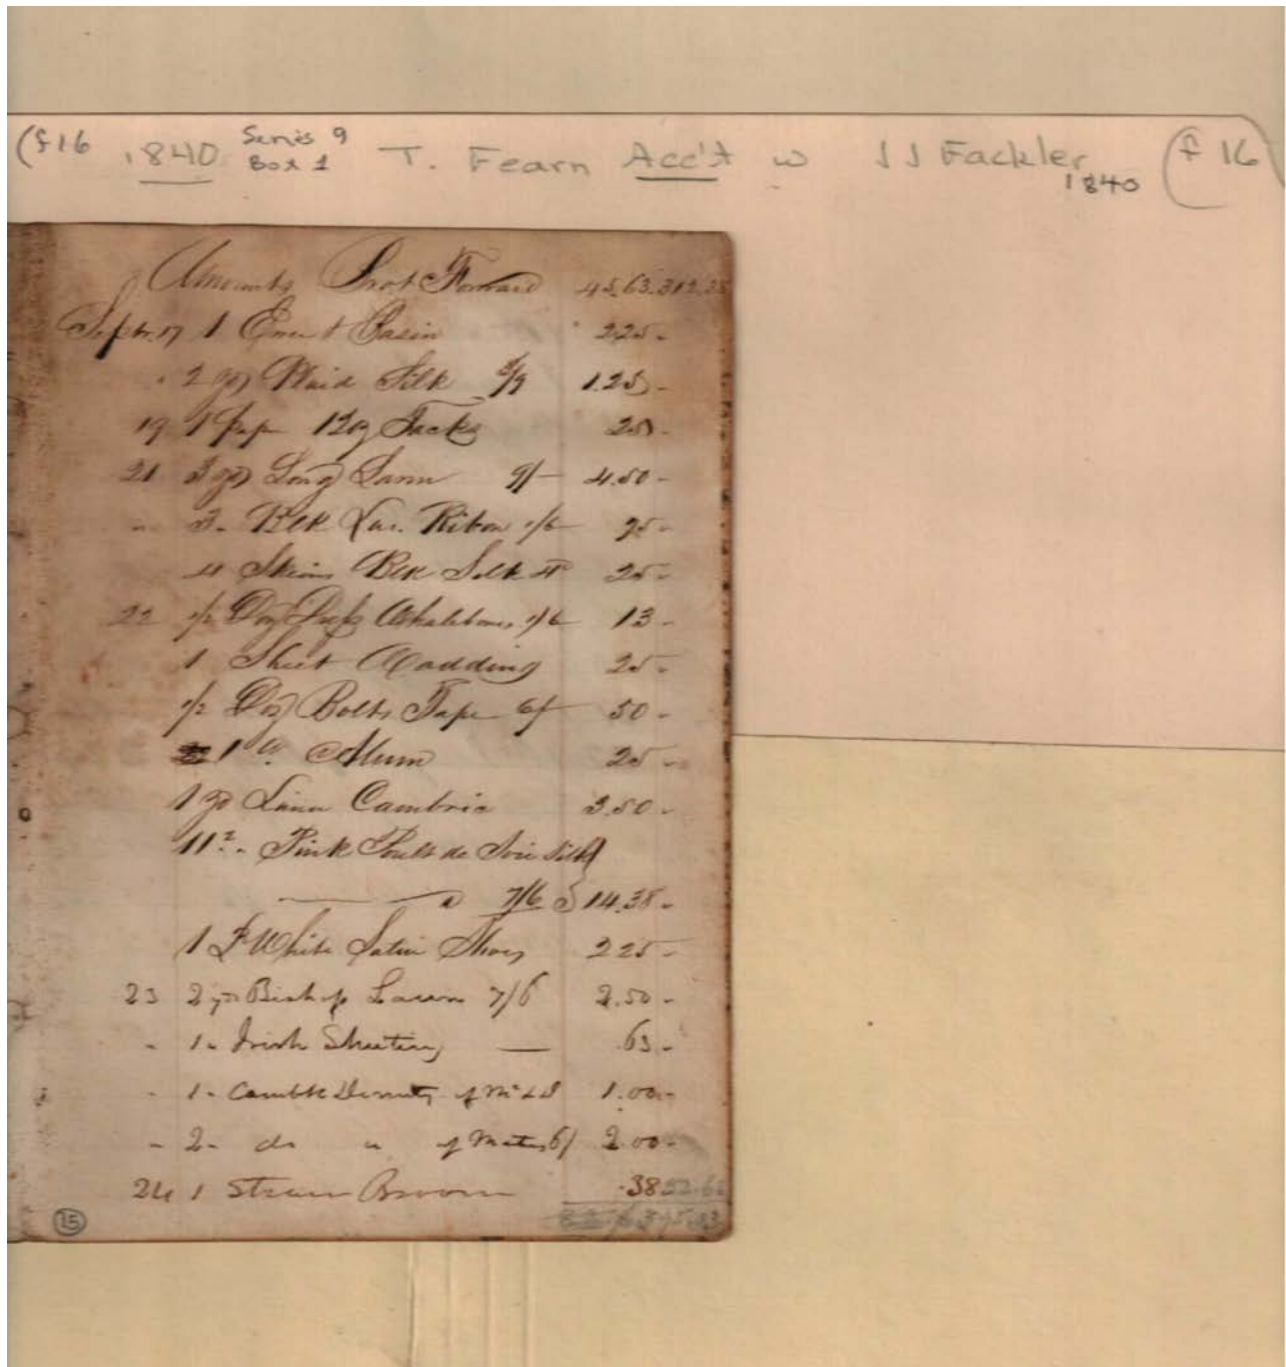 (f16 1840 Series 9 Box 1 T. Fearn Acc't w J J Fackler 1840 (f 16
Amounts Brot Forward 45.63. 312.
Septr. 17 1 Basin 2.25 -
" 2 yds Plaid Silk 1.25 -
19 1 Pap 12oz Tacks 25 -
21 3 yds Long Lawn 9/- 4.50 -
" 3 - Blk Ribon 1/6 75 -
4 Skeins Blk Silk 25 -
22 1/2 Doz Whalebones 1/6 13 -
1 Sheet Wadding 25 -
1/2 Doz Bolts Tape 6/ 50 -
1 lb. Alum 25 -
1 yd Linen Cambric 3.50 -
11 2 - Pink Poult de Soie Silk }
7/6 } 14.38 -
1 Pr White Satin Shoes 2.25 -
23 2 yds Bishop Lawn 7/6 2.50 -
- 1 - Irish Sheeting — .63 -
- 1 - 1.00 -
- 2 - do " 6/ 2.00 -
24 1 Straw Broom .38 52.
15